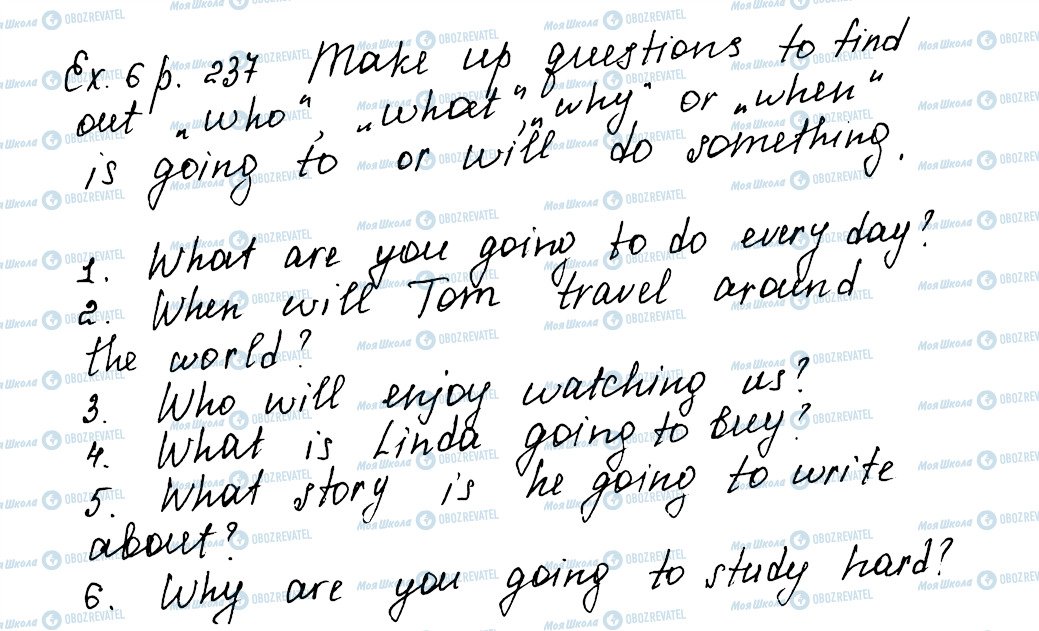 Ex. 6 p. 237 Make up questions to find
out „who“, „what“, „why“ or „when“
is going to or will do something.
1. What are you going to do every day?
2. When will Tom travel around
the world?
3. Who will enjoy watching us?
4. What is Linda going to buy?
5. What story is he going to write
about?
6. Why are you going to study hard?